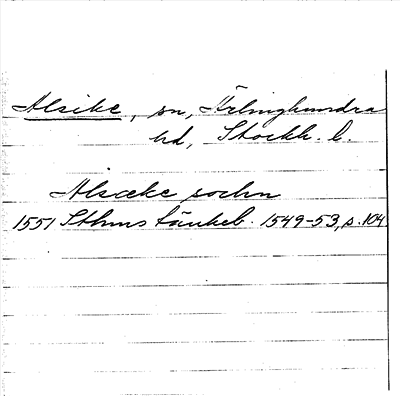 Alsike, sn, Ärlinghundra
hd, Stockh. l.
Alsæke sochn
1551 Sthms tänkeb. 1549-53, s. 104